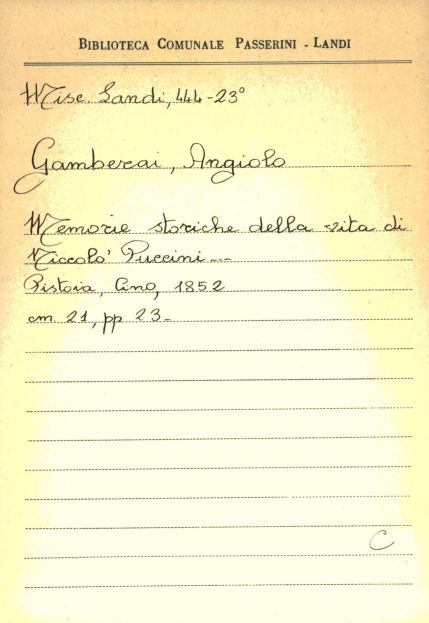 BIBLIOTECA COMUNALE PASSERINI - LANDI
Misc. Landi, 444-23°
Gambercai, Angiolo
Memorie storiche della vita di
Niccolo' Puccini...
Pistoia, Cino, 1852
cm. 21, pp 23.
C